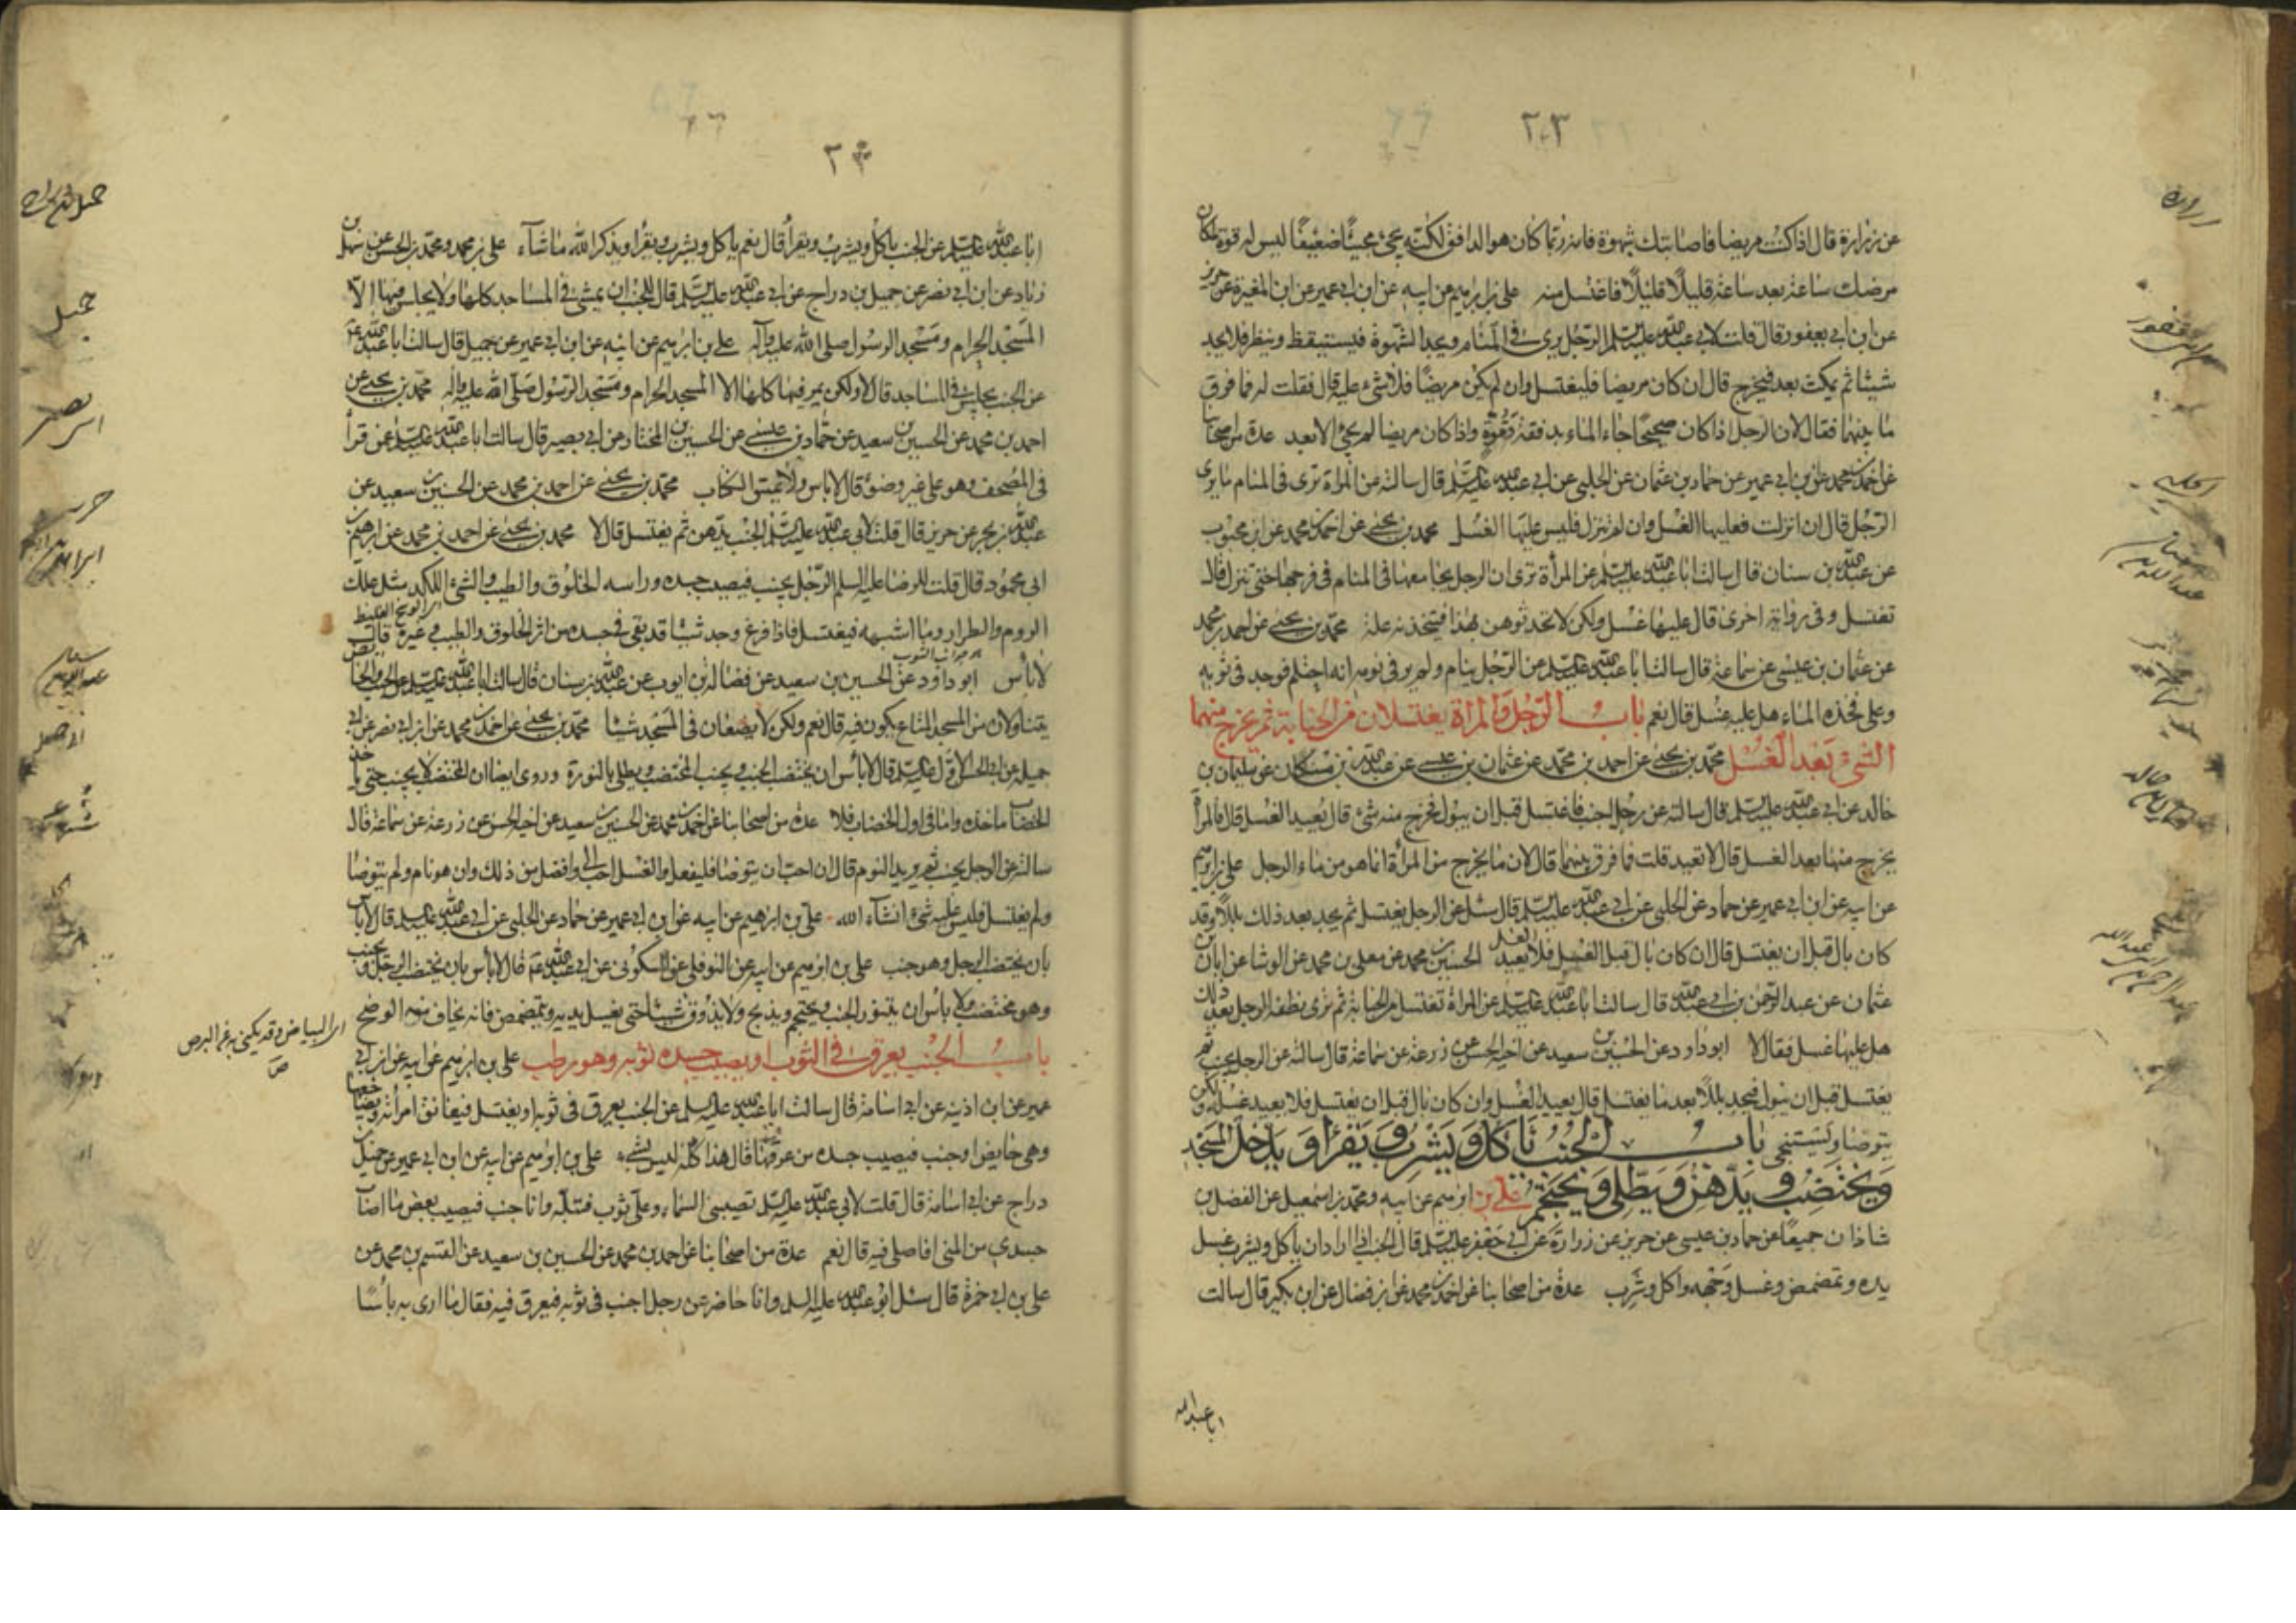 ٢٠٣
عن زرارة قال اذا كنت مريضا فاصابتك شهوة فانه ربما كان هو الدافق لكنه يجئ مجيئا ضعيفا ليس له قوة لمكان
مرضك ساعة بعد ساعة قليلا قليلا فاغتسل منه علي بن ابرهيم عن ابيه عن ابن ابي عمير عن ابن المغيرة عن حريز
عن ابن ابي يعفور قال قلت لابي عبد الله عليه السلم الرجل يرى في المنام ويجد الشهوة فيستيقظ وينظر فلا يجد
شيئا ثم يمكث بعد فيخرج قال ان كان مريضا فليغتسل وان لم يكن مريضا فلا شيء عليه قال فقلت له فما فرق
ما بينهما فقال لان الرجل اذا كان صحيحا جاء الماء بدفقة وقوة واذا كان مريضا لم يجئ الا بعد عدة من اصحابنا
عن احمد بن محمد عن ابن ابي عمير عن حماد بن عثمان عن الحلبي عن ابي عبد الله عليه السلم قال سالته عن المراة ترى في المنام ما يرى
الرجل قال ان انزلت فعليها الغسل وان لم تنزل فليس عليها الغسل محمد بن يحيى عن احمد بن محمد عن ابن محبوب
عن عبد الله بن سنان قال سالت ابا عبد الله عليه السلم عن المرأة ترى ان الرجل يجامعها في المنام في فرجها حتى تنزل قال
تغتسل وفي رواية اخرى قال عليها غسل ولكن لا تحدثوهن بهذا فيتخذنه علة محمد بن يحيى عن احمد بن محمد
عن عثمان بن عيسى عن سماعة قال سالت ابا عبد الله عليه السلم عن الرجل ينام ولم ير في نومه انه احتلم فوجد في ثوبه
وعلى فخذه الماء هل عليه غسل قال نعم باب الرجل والمراة يغتسلان من الجنابة ثم يخرج منهما
الشيء بعد الغسل محمد بن يحيى عن احمد بن محمد عن عثمان بن عيسى عن عبد الله بن مسكان عن سليمان بن
خالد عن ابي عبد الله عليه السلم قال سالته عن رجل اجنب فاغتسل قبل ان يبول فخرج منه شئ قال يعيد الغسل قلت فالمرأة
يخرج منها بعد الغسل قال لا تعيد قلت فما فرق بينهما قال لان ما يخرج من المرأة انما هو من ماء الرجل علي بن ابرهيم
عن ابيه عن ابن ابي عمير عن حماد عن الحلبي عن ابي عبد الله عليه السلم قال سئل عن الرجل يغتسل ثم يجد بعد ذلك بللا وقد
كان بال قبل ان يغتسل قال ان كان بال قبل الغسل فلا يعيد الغسل الحسين بن محمد عن معلى بن محمد عن الوشا عن ابان بن
عثمان عن عبد الرحمن بن ابي عبد الله قال سالت ابا عبد الله عليه السلم عن المرأة تغتسل من الجنابة ثم ترى نطفة الرجل بعد ذلك
هل عليها غسل فقال لا ابو داود عن الحسين بن سعيد عن اخيه الحسن عن زرعة عن سماعة قال سالته عن الرجل يجنب ثم
يغتسل قبل ان يبول فيجد بللا بعد ما يغتسل قال يعيد الغسل وان كان بال قبل ان يغتسل فلا يعيد غسله ولكن
يتوضا ويستنجي باب الجنب يأكل ويشرب ويقرأ ويدخل المسجد
ويختضب ويدهن ويطلي ويحتجم علي بن ابرهيم عن ابيه ومحمد بن اسمعيل عن الفضل بن
شاذان جميعا عن حماد بن عيسى عن حريز عن زرارة عن ابي جعفر عليه السلم قال الجنب اذا اراد ان ياكل ويشرب غسل
يده وتمضمض وغسل وجهه واكل وشرب عدة من اصحابنا عن احمد بن محمد عن ابن فضال عن ابن بكير قال سالت
ابا عبد الله
ابا عبد الله عليه السلم عن الجنب ياكل ويشرب ويقرأ قال نعم ياكل ويشرب ويقرا ويذكر الله ما شآء علي بن محمد ومحمد بن الحسن عن سهل بن
زياد عن ابن ابي نصر عن جميل بن دراج عن ابي عبد الله عليه السلم قال للجنب ان يمشي في المساجد كلها ولا يجلس فيها الا
المسجد الحرام ومسجد الرسول صلى الله عليه وآله علي بن ابرهيم عن ابيه عن ابن ابي عمير عن جميل قال سالت ابا عبد الله ع
عن الجنب يجلس في المساجد قال لا ولكن يمر فيها كلها الا المسجد الحرام ومسجد الرسول صلى الله عليه واله محمد بن يحيى عن
احمد بن محمد عن الحسين بن سعيد عن حماد بن عيسى عن الحسين بن المختار عن ابي بصير قال سالت ابا عبد الله عليه السلم عمن قرأ
في المصحف وهو على غير وضوء قال لا باس ولا يمس الكتاب محمد بن يحيى عن احمد بن محمد عن الحسين بن سعيد عن
عبد الله بن بحر عن حريز قال قلت لابي عبد الله عليه السلم الجنب يدهن ثم يغتسل قال لا محمد بن يحيى عن احمد بن محمد عن ابرهيم بن
ابي محمود قال قلت للرضا عليه السلم الرجل يجنب فيصيب جسده وراسه الخلوق والطيب والشئ اللكد مثل علك
الروم والطرار وما اشبهه فيغتسل فاذا فرغ وجد شيئا قد بقي في جسده من اثر الخلوق والطيب وغيره قال
لا بأس ابو داود عن الحسين بن سعيد عن فضالة بن ايوب عن عبد الله بن سنان قال سالت ابا عبد الله عليه السلم عن الجنب والحائض
يتناولان من المسجد المتاع يكون فيه قال نعم ولكن لا يضعان في المسجد شيئا محمد بن يحيى عن احمد بن محمد عن ابن ابي نصر عن ابي
جميلة عن ابي الحسن الاول عليه السلم قال لا بأس ان يختضب الجنب ويجنب المختضب ويطلي بالنورة وروى ايضا ان المختضب لا يجنب حتى ياخذ
الخضاب ماخذه واما في اول الخضاب فلا عدة من اصحابنا عن احمد بن محمد عن الحسين بن سعيد عن اخيه الحسن عن زرعة عن سماعة قال
سالته عن الرجل يجنب ثم يريد النوم قال ان احب ان يتوضا فليفعل والغسل احب الي وافضل من ذلك وان هو نام ولم يتوضا
ولم يغتسل فليس عليه شئ انشآء الله علي بن ابرهيم عن ابيه عن ابن ابي عمير عن حماد عن الحلبي عن ابي عبد الله عليه السلم قال لا باس
بان يختضب الرجل وهو جنب علي بن ابرهيم عن ابيه عن النوفلي عن السكوني عن ابي عبد الله ع قال لا بأس بان يختضب الرجل ويجنب
وهو مختضب ولا بأس ان يتنور الجنب ويحتجم ويذبح ولا يذوق شيئا حتى يغسل يديه ويتمضمض فانه يخاف منه الوضح
اي البياض وقد يكنى به عن البرص
باب الجنب يعرق في الثوب او يصيب جسده ثوبه وهو رطب علي بن ابرهيم عن ابيه عن ابن ابي
عمير عن ابن اذينة عن ابي اسامة قال سالت ابا عبد الله عليه السلم عن الجنب يعرق في ثوبه او يغتسل فيعانق امرأته ويضاجعها
وهي حايض او جنب فيصيب جسده من عرقها قال هذا كله ليس بشيء علي بن ابرهيم عن ابيه عن ابن ابي عمير عن جميل بن
دراج عن ابي اسامة قال قلت لابي عبد الله عليه السلم تصيبني السماء وعلي ثوب فتبله وانا جنب فيصيب بعض ما اصاب
جسدي من المني افاصلي فيه قال نعم عدة من اصحابنا عن احمد بن محمد عن الحسين بن سعيد عن القسم بن محمد عن
علي بن ابي حمزة قال سئل ابو عبد الله عليه السلم وانا حاضر عن رجل اجنب في ثوبه فيعرق فيه فقال ما ارى به بأسا